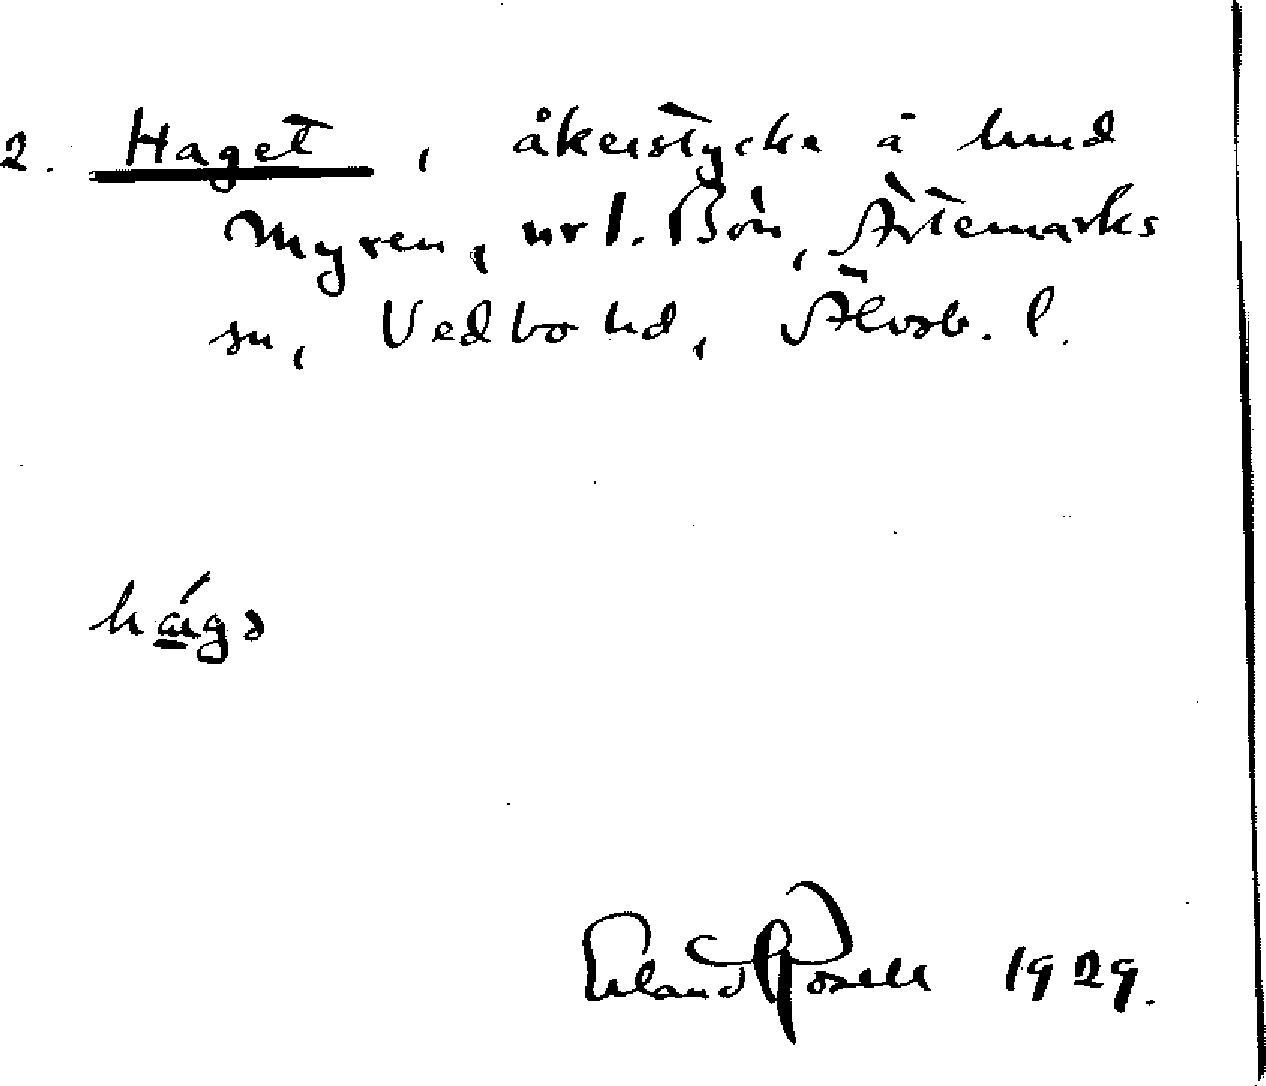 2. Haget, åkerstycke å hmd
Myren, nr 1. Bön, Ärtemarks
sn, Vedbo hd, Älvsb. l.
Erland Rosell 1929.